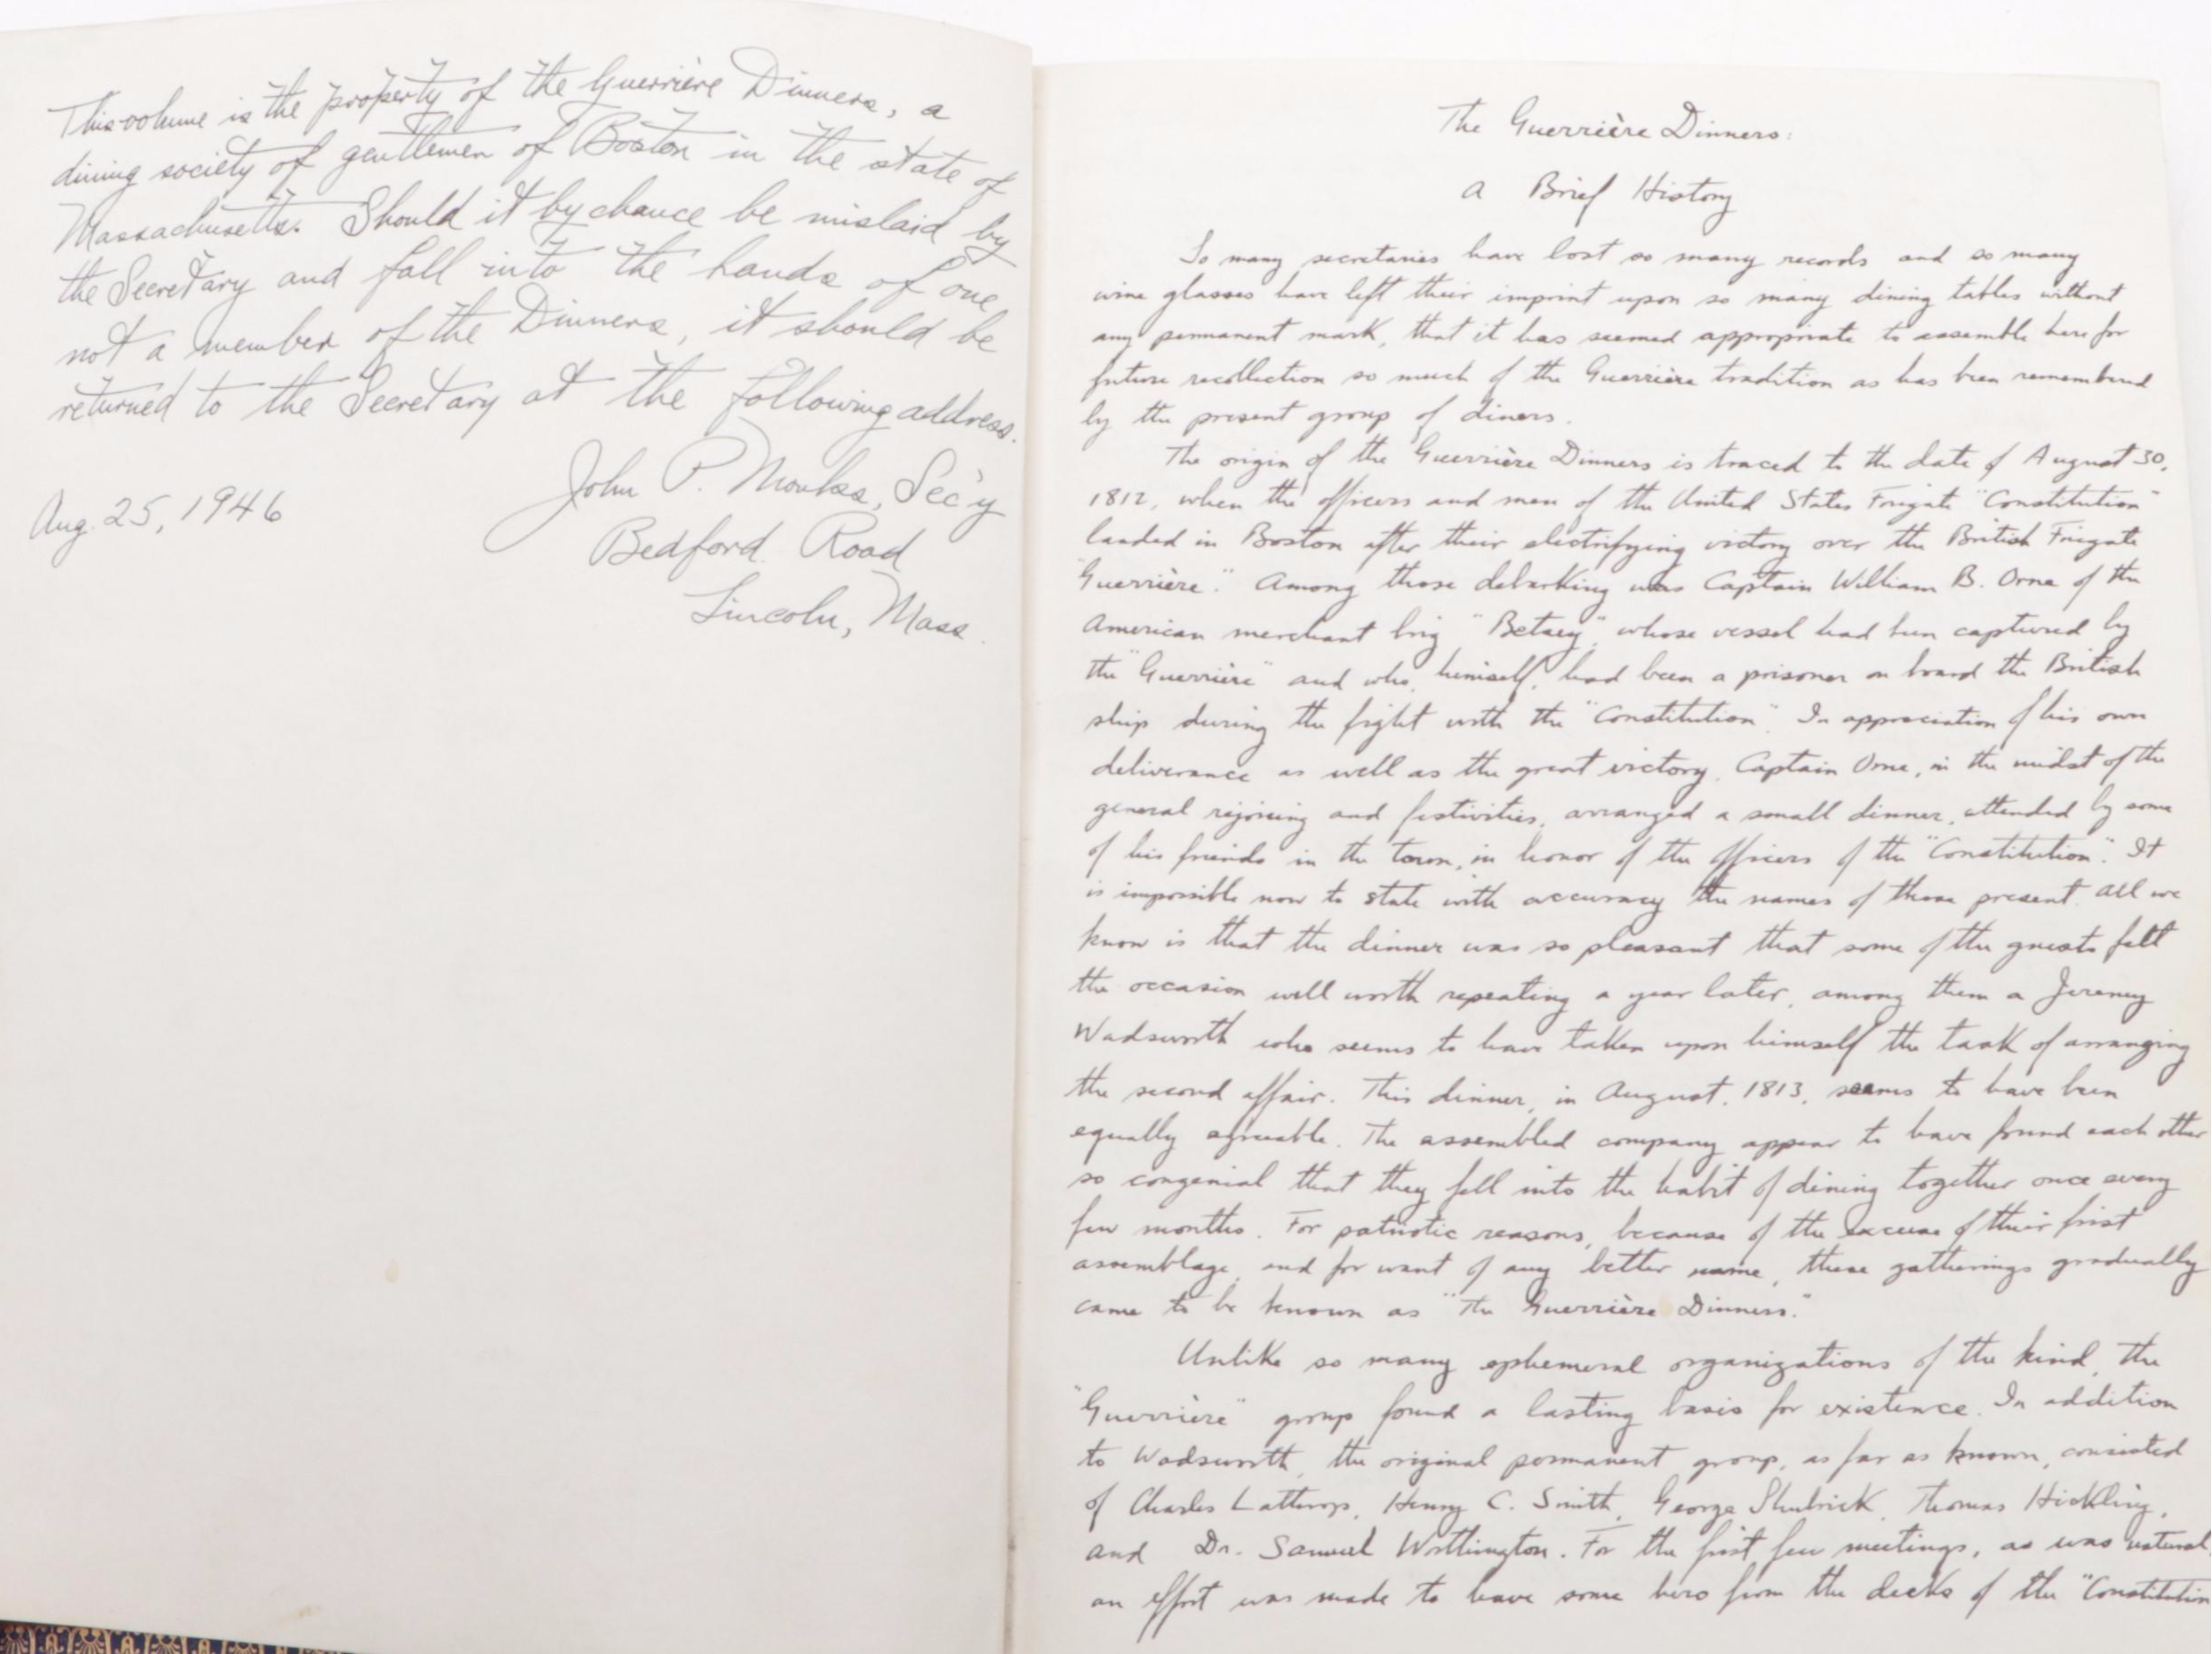 This volume is the property of the Guerrière Dinners, a
dining society of gentlemen of Boston in the state of
Massachusetts. Should it by chance be mislaid by
the Secretary and fall into the hands of one
not a member of the Dinners, it should be
returned to the Secretary at the following address.
John P. Monks, Sec'y
Aug. 25, 1946
Bedford Road
Lincoln, Mass.
The Guerrière Dinners:
A Brief History
So many secretaries have lost so many records and so many
wine glasses have left their imprint upon so many dining tables without
any permanent mark, that it has seemed appropriate to assemble here for
future recollection so much of the Guerrière tradition as has been remembered
by the present group of diners.
The origin of the Guerrière Dinners is traced to the date of August 30,
1812, when the officers and men of the United States Frigate "Constitution"
landed in Boston after their electrifying victory over the British Frigate
"Guerrière". Among those debarking was Captain William B. Orne of the
American merchant brig "Betsey", whose vessel had been captured by
the "Guerrière" and who, himself, had been a prisoner on board the British
ship during the fight with the "Constitution". In appreciation of his own
deliverance as well as the great victory, Captain Orne, in the midst of the
general rejoicing and festivities, arranged a small dinner, attended by some
of his friends in the town, in honor of the officers of the "Constitution". It
is impossible now to state with accuracy the names of those present. All we
know is that the dinner was so pleasant that some of the guests felt
the occasion well worth repeating a year later, among them a Jeremy
Wadsworth who seems to have taken upon himself the task of arranging
the second affair. This dinner, in August, 1813, seems to have been
equally agreeable. The assembled company appear to have found each other
so congenial that they fell into the habit of dining together once every
few months. For patriotic reasons, because of the excuse of their first
assemblage, and for want of any better name, these gatherings gradually
came to be known as "The Guerrière Dinners."
Unlike so many ephemeral organizations of the kind, the
"Guerrière" group found a lasting basis for existence. In addition
to Wadsworth, the original permanent group, as far as known, consisted
of Charles Lathrop, Henry C. Smith, George Shubrick, Thomas Hickling,
and Dr. Samuel Worthington. For the first few meetings, as was natural,
an effort was made to have some hero from the decks of the "Constitution